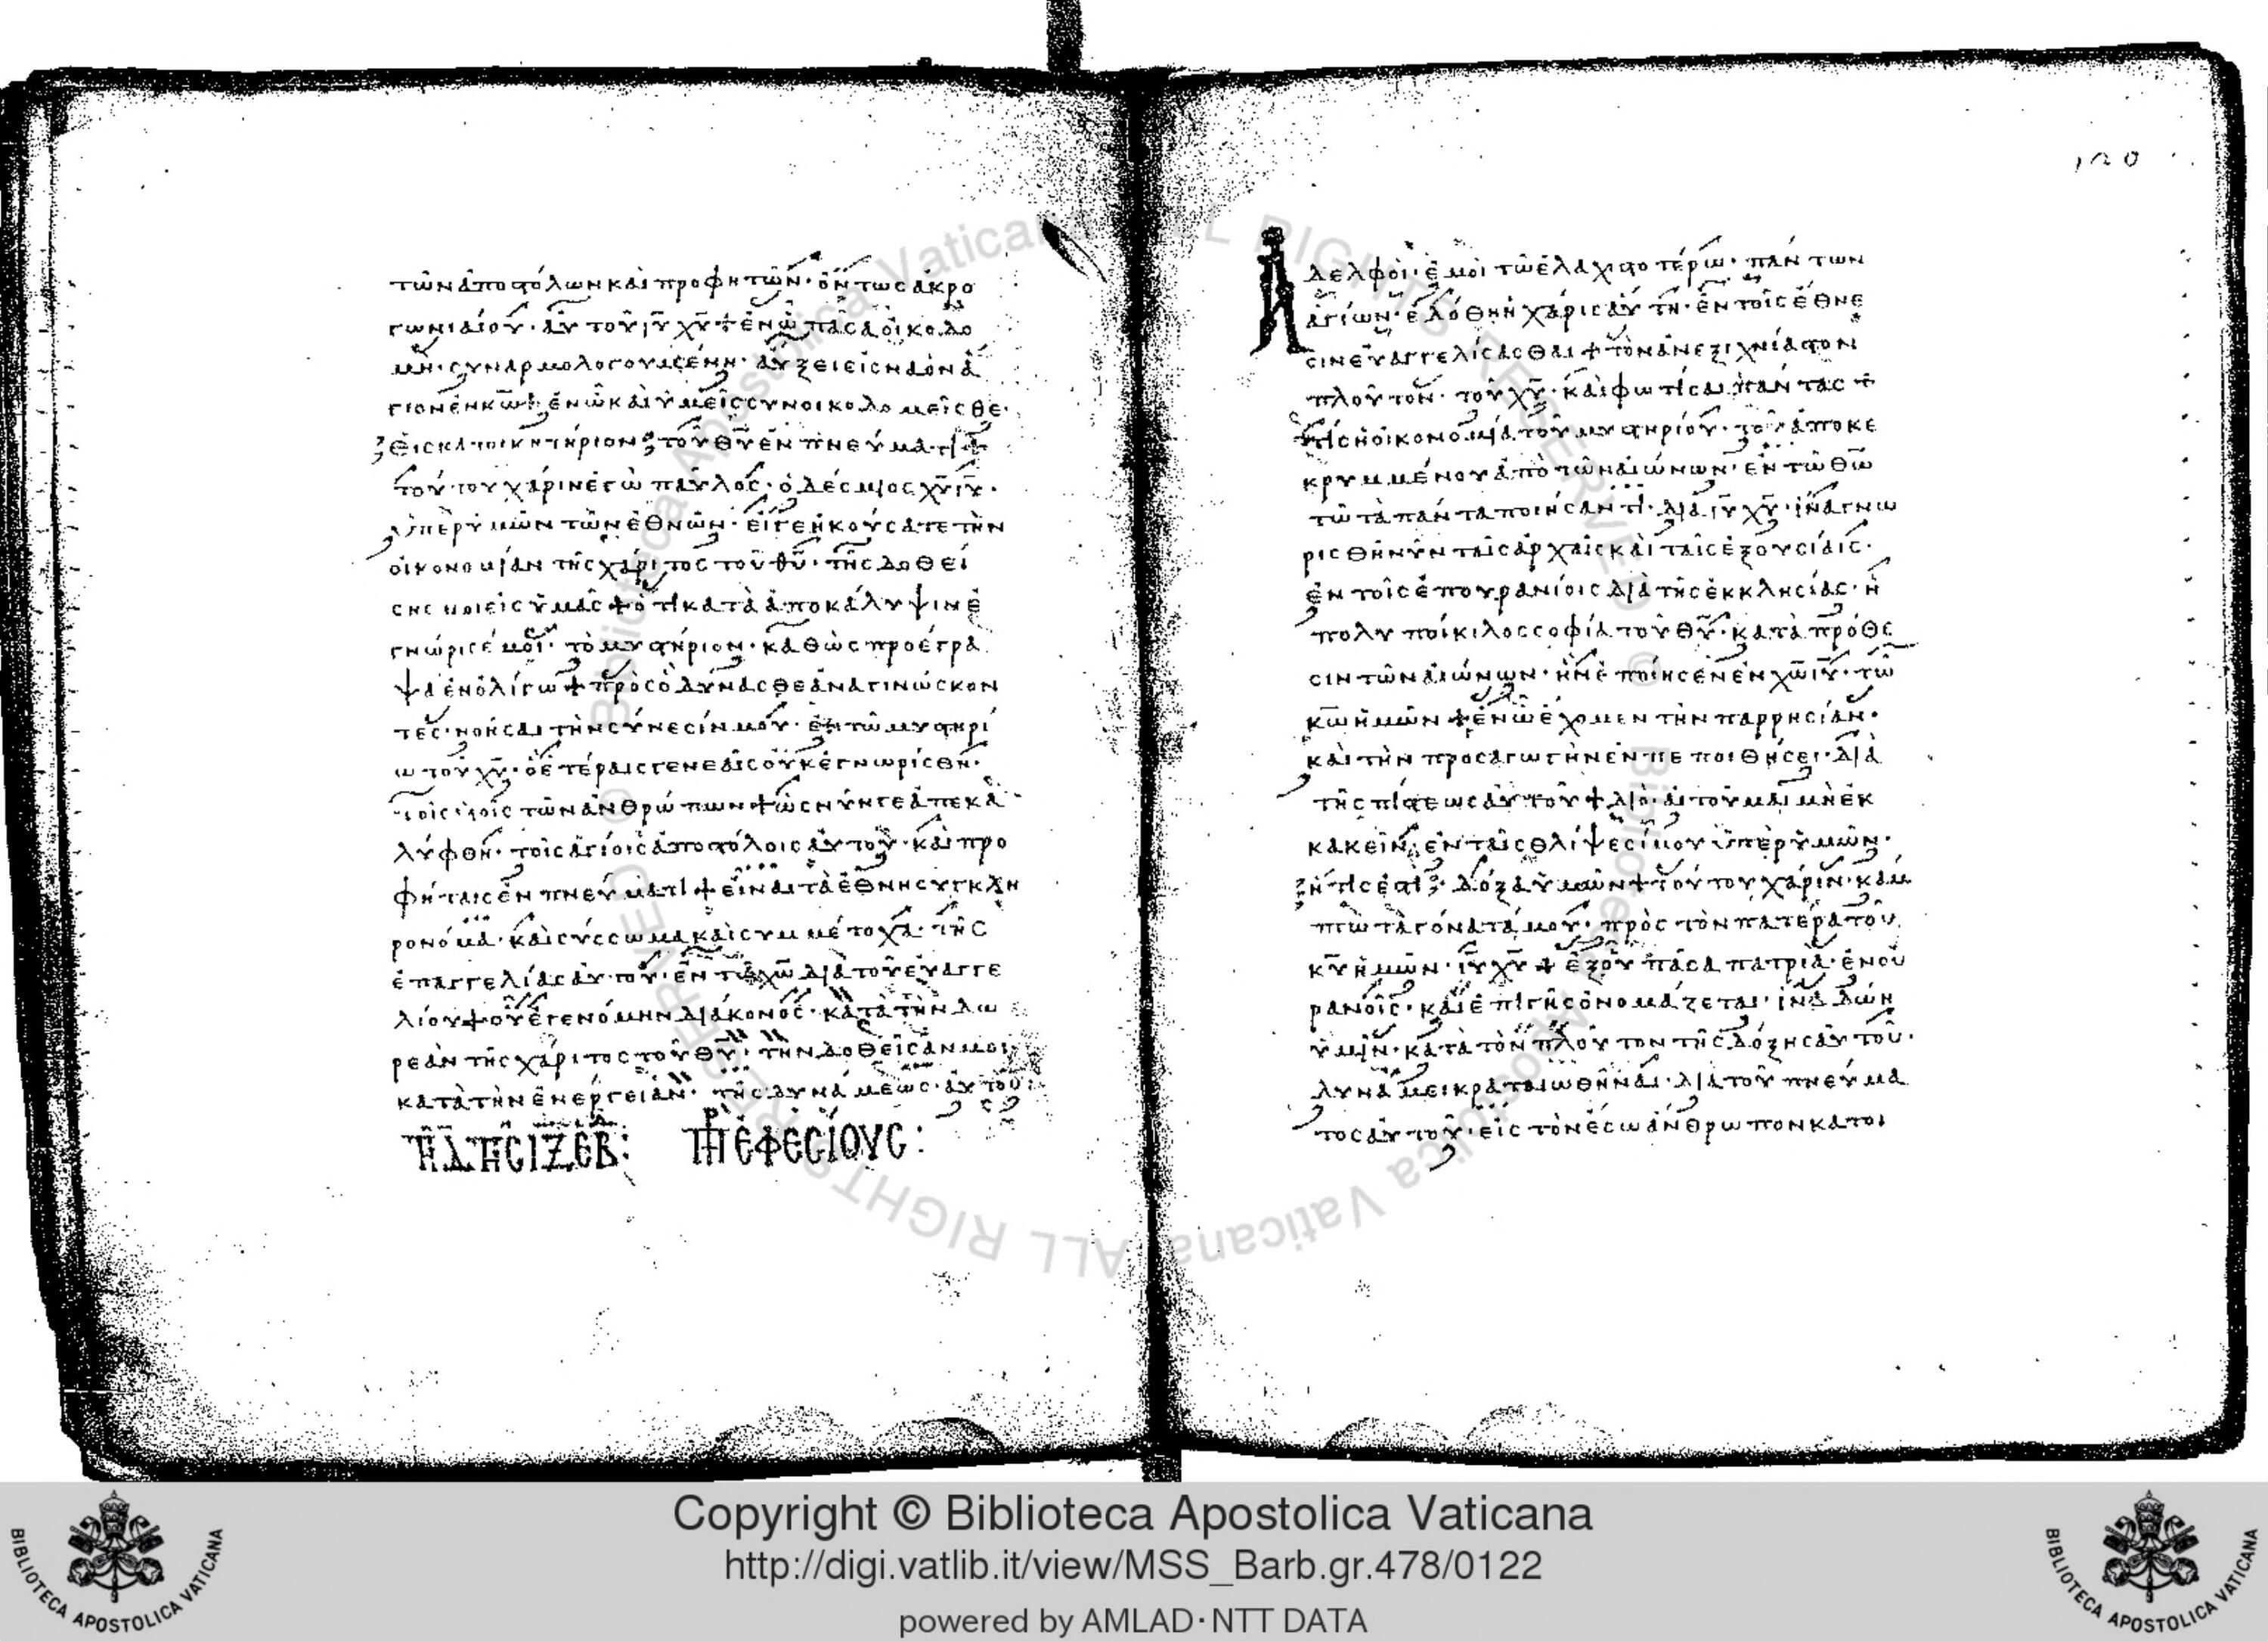 τῶν ἀποστόλων καὶ προφητῶν· ὄντως ἀκρο
γωνιαίου· αὐτοῦ ἰυ χυ + ἐν ὧ πᾶσα οἰκοδο
μὴ· συναρμολογουμένη· αὔξει εἰς ναὸν ἅ
γιον ἐν κω + ἐν ὧ καὶ ὑμεῖς συνοικοδομεῖσθε·
εἰς κατοικητήριον τοῦ θυ ἐν πνεύματι +
τούτου χάριν ἐγὼ παῦλος· ὁ δέσμιος χυ ιυ·
ὑπὲρ ὑμῶν τῶν ἐθνῶν· εἴγε ἠκούσατε τὴν
οἰκονομίαν τῆς χάριτος τοῦ θυ· τῆς δοθεί
σης μοι εἰς ὑμᾶς + ὅτι κατὰ ἀποκάλυψιν ἐ
γνώρισέ μοι· τὸ μυστήριον· καθὼς προέγρα
ψα ἐν ὀλίγω + πρὸς ὃ δύνασθε ἀναγινώσκον
τες· νοῆσαι τὴν σύνεσίν μου· ἐν τῶ μυστηρί
ω τοῦ χυ· ὃ ἑτέραις γενεαῖς οὐκ ἐγνωρίσθη·
τοῖς υἱοῖς τῶν ἀνθρώπων + ὡς νῦν γε ἀπεκα
λύφθη· τοῖς ἁγίοις ἀποστόλοις αὐτοῦ· καὶ προ
φήταις ἐν πνεύματι + εἶναι τὰ ἔθνη συγκλη
ρονόμα· καὶ σύσσωμα καὶ συμμέτοχα· τῆς
ἐπαγγελίας αὐτοῦ· ἐν τῶ χω διὰ τοῦ εὐαγγε
λίου + οὗ ἐγενόμην διάκονος· κατὰ τὴν δω
ρεὰν τῆς χάριτος τοῦ θυ· τὴν δοθεῖσάν μοι
κατὰ τὴν ἐνέργειαν· τῆς δυνάμεως αὐτοῦ:
ἐφεσίους:
120
Ἀδελφοὶ· ἐμοὶ τῶ ἐλαχιστοτέρω· πάντων
ἁγίων· ἐδόθη ἡ χάρις αὕτη· ἐν τοῖς ἔθνε
σιν εὐαγγελίσασθαι + τὸν ἀνεξιχνίαστον
πλοῦτον· τοῦ χυ· καὶ φωτίσαι πάντας +
τίς ἡ οἰκονομία τοῦ μυστηρίου· τοῦ ἀποκε
κρυμμένου ἀπὸ τῶν αἰώνων· ἐν τῶ θω
τῶ τὰ πάντα ποιήσαντι· διὰ ιυ χυ· ἵνα γνω
ρισθῆ νῦν ταῖς ἀρχαῖς καὶ ταῖς ἐξουσίαις·
ἐν τοῖς ἐπουρανίοις διὰ τῆς ἐκκλησίας· ἡ
πολυποίκιλος σοφία τοῦ θυ· κατὰ πρόθε
σιν τῶν αἰώνων· ἣν ἐποίησεν ἐν χω ιυ· τῶ
κω ἡμῶν + ἐν ὧ ἔχομεν τὴν παρρησίαν·
καὶ τὴν προσαγωγὴν ἐν πεποιθήσει· διὰ
τῆς πίστεως αὐτοῦ + διὸ· αἰτοῦμαι μὴ ἐκ
κακεῖν· ἐν ταῖς θλίψεσί μου ὑπὲρ ὑμῶν·
ἥτις ἐστὶ δόξα ὑμῶν + τούτου χάριν· κάμ
πτω τὰ γόνατά μου· πρὸς τὸν πατέρα τοῦ
κυ ἡμῶν· ιυ χυ + ἐξ οὗ πᾶσα πατριὰ· ἐν οὐ
ρανοῖς· καὶ ἐπὶ γῆς ὀνομάζεται· ἵνα δώη
ὑμῖν· κατὰ τὸν πλοῦτον τῆς δόξης αὐτοῦ·
δυνάμει κραταιωθῆναι· διὰ τοῦ πνεύμα
τος αὐτοῦ· εἰς τὸν ἔσω ἄνθρωπον κατοι
Copyright © Biblioteca Apostolica Vaticana
http://digi.vatlib.it/view/MSS_Barb.gr.478/0122
powered by AMLAD·NTT DATA